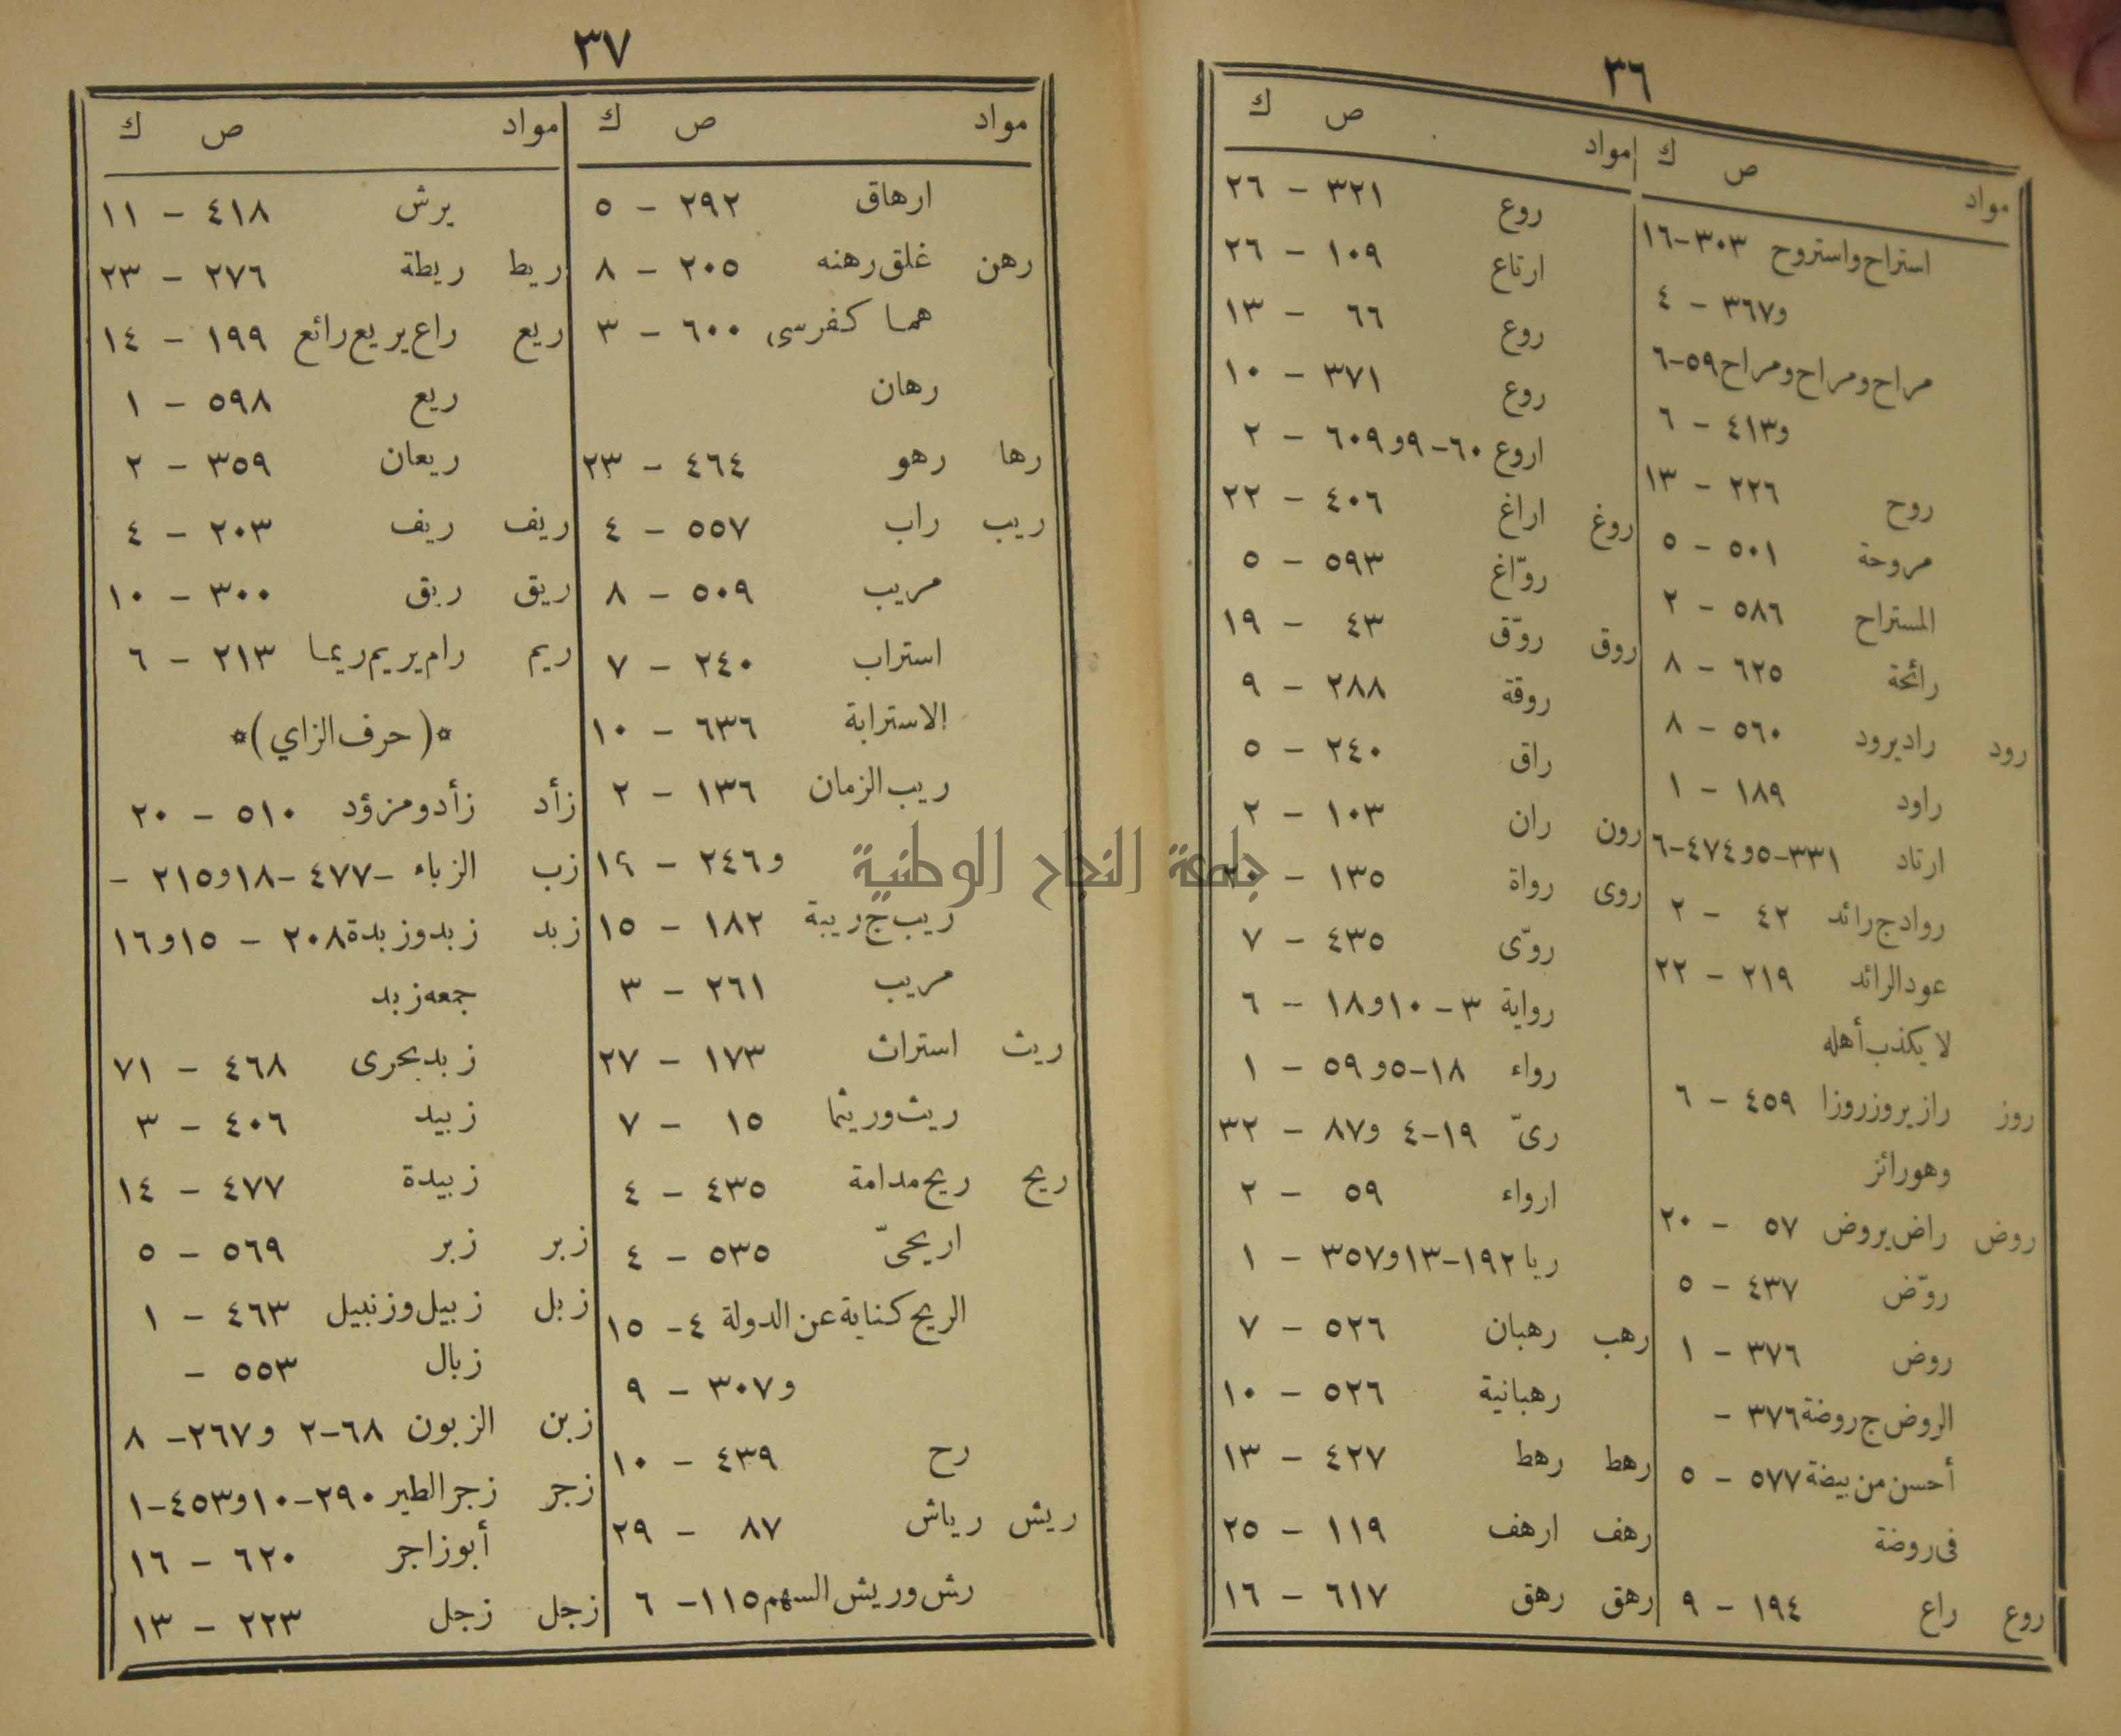 ٣٦
مواد ص ك
استراح واستروح ٣٠٣-١٦
و٣٦٧ - ٤
مراح ومراح ومراح ٥٩-٦
و٤١٣ - ٦
روح ٢٢٦ - ١٣
مروحة ٥٠١ - ٥
المستراح ٥٨٦ - ٢
رائحة ٦٢٥ - ٨
رود راد يرود ٥٦٠ - ٨
راود ١٨٩ - ١
ارتاد ٣٣١-٥و٤٧٤-٦
رواد ج رائد ٤٢ - ٢
عود الرائد ٢١٩ - ٢٢
لا يكذب أهله
روز راز يروز روزا ٤٥٩ - ٦
وهو رائز
روض راض يروض ٥٧ - ٢٠
روّض ٤٣٧ - ٥
روض ٣٧٦ - ١
الروض ج روضة ٣٧٦ -
أحسن من بيضة ٥٧٧ - ٥
فى روضة
روع راع ١٩٤ - ٩
مواد ص ك
روع ٣٢١ - ٢٦
ارتاع ١٠٩ - ٢٦
روع ٦٦ - ١٣
روع ٣٧١ - ١٠
اروع ٦٠-٩و٦٠٩ - ٢
روغ اراغ ٤٠٦ - ٢٢
روّاغ ٥٩٣ - ٥
روق روّق ٤٣ - ١٩
روقة ٢٨٨ - ٩
راق ٢٤٠ - ٥
رون ران ١٠٣ - ٢
روى رواة ١٣٥ - ٢٠
روّى ٤٣٥ - ٧
رواية ٣ - ١٠و١٨ - ٦
رواء ١٨-٥و٥٩ - ١
رىّ ١٩-٤ و٨٧ - ٣٢
ارواء ٥٩ - ٢
ريا ١٩٢-١٣و٣٥٧ - ١
رهب رهبان ٥٢٦ - ٧
رهبانية ٥٢٦ - ١٠
رهط رهط ٤٢٧ - ١٣
رهف ارهف ١١٩ - ٢٥
رهق رهق ٦١٧ - ١٦
٣٧
مواد ص ك
ارهاق ٢٩٢ - ٥
رهن غلق رهنه ٢٠٥ - ٨
هما كفرسى ٦٠٠ - ٣
رهان
رها رهو ٤٦٤ - ٢٣
ريب راب ٥٥٧ - ٤
مريب ٥٠٩ - ٨
استراب ٢٤٠ - ٧
الاسترابة ٦٣٦ - ١٠
ريب الزمان ١٣٦ - ٢
و٢٤٦ -
ريب ج ريبة ١٨٢ - ١٥
مريب ٢٦١ - ٣
ريث استراث ١٧٣ - ٢٧
ريث وريثما ١٥ - ٧
ريح ريح مدامة ٤٣٥ - ٤
اريحىّ ٥٣٥ - ٤
الريح كناية عن الدولة ٤- ١٥
و٣٠٧ - ٩
رح ٤٣٩ - ١٠
ريش رياش ٨٧ - ٢٩
رش وريش السهم ١١٥- ٦
مواد ص ك
يرش ٤١٨ - ١١
ريط ريطة ٢٧٦ - ٢٣
ريع راع يريع رائع ١٩٩ - ١٤
ريع ٥٩٨ - ١
ريعان ٣٥٩ - ٢
ريف ريف ٢٠٣ - ٤
ريق ريق ٣٠٠ - ١٠
ريم رام يريم ريما ٢١٣ - ٦
*(حرف الزاي)*
زأد زأد ومزؤد ٥١٠ - ٢٠
زب الزباء -٤٧٧-١٨و٢١٥ -
زبد زبد وزبدة ٢٠٨ - ١٥و١٦
جمعه زبد
زبد بحرى ٤٦٨ - ٧١
زبيد ٤٠٦ - ٣
زبيدة ٤٧٧ - ١٤
زبر زبر ٥٦٩ - ٥
زبل زبيل وزنبيل ٤٦٣ - ١
زبال ٥٥٣ -
زبن الزبون ٦٨-٢ و٢٦٧- ٨
زجر زجر الطير ٢٩٠-١٠و٤٥٣-١
أبو زاجر ٦٢٠ - ١٦
زجل زجل ٢٢٣ - ١٣
جامعة النجاح الوطنية